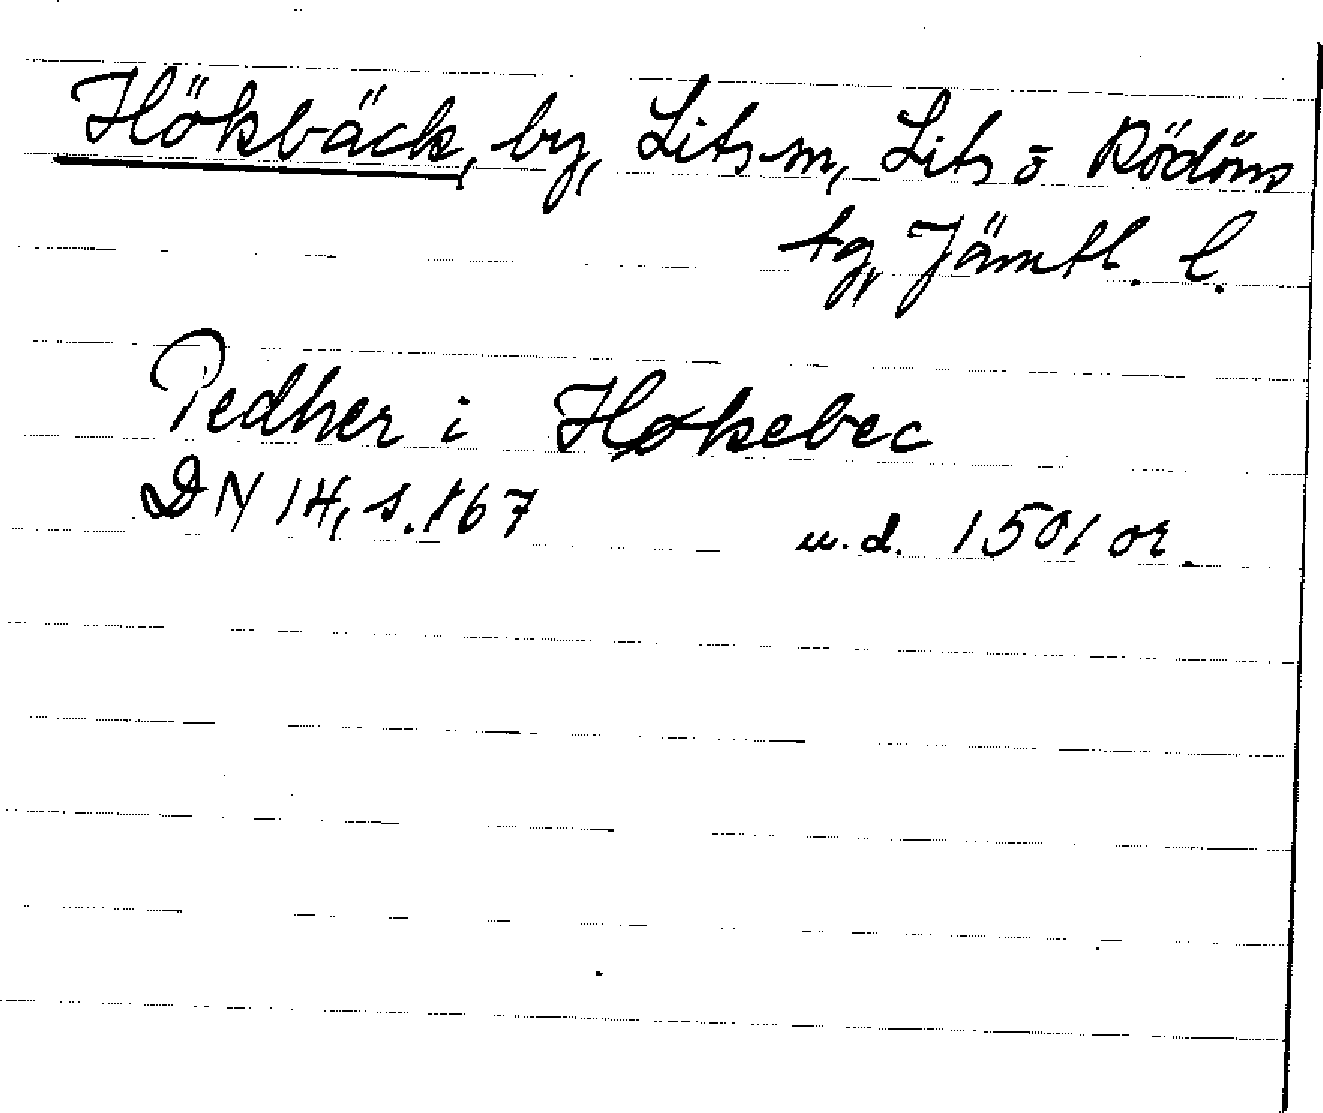 Hökbäck, by, Lits sn, Lits o Rödöns
tg, Jämtl. l.
Pedher i Høkebec
DN 14, s. 167 u.d. 1501 or.